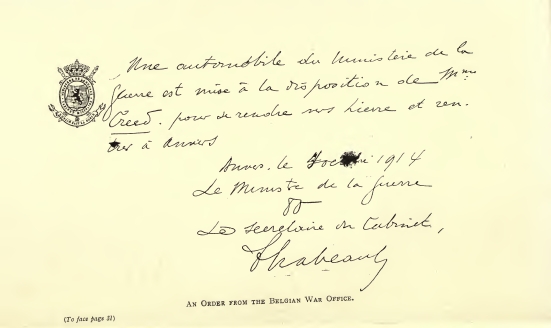 Une automobile du Ministère de la
guerre est mise à la disposition de Mme
Creed. pour se rendre vers Lierre et ren-
trer à Anvers
Anvers, le 1914
Le Ministre de la guerre
Le Secrétaire du Cabinet,
AN ORDER FROM THE BELGIAN WAR OFFICE.
(To face page 31)